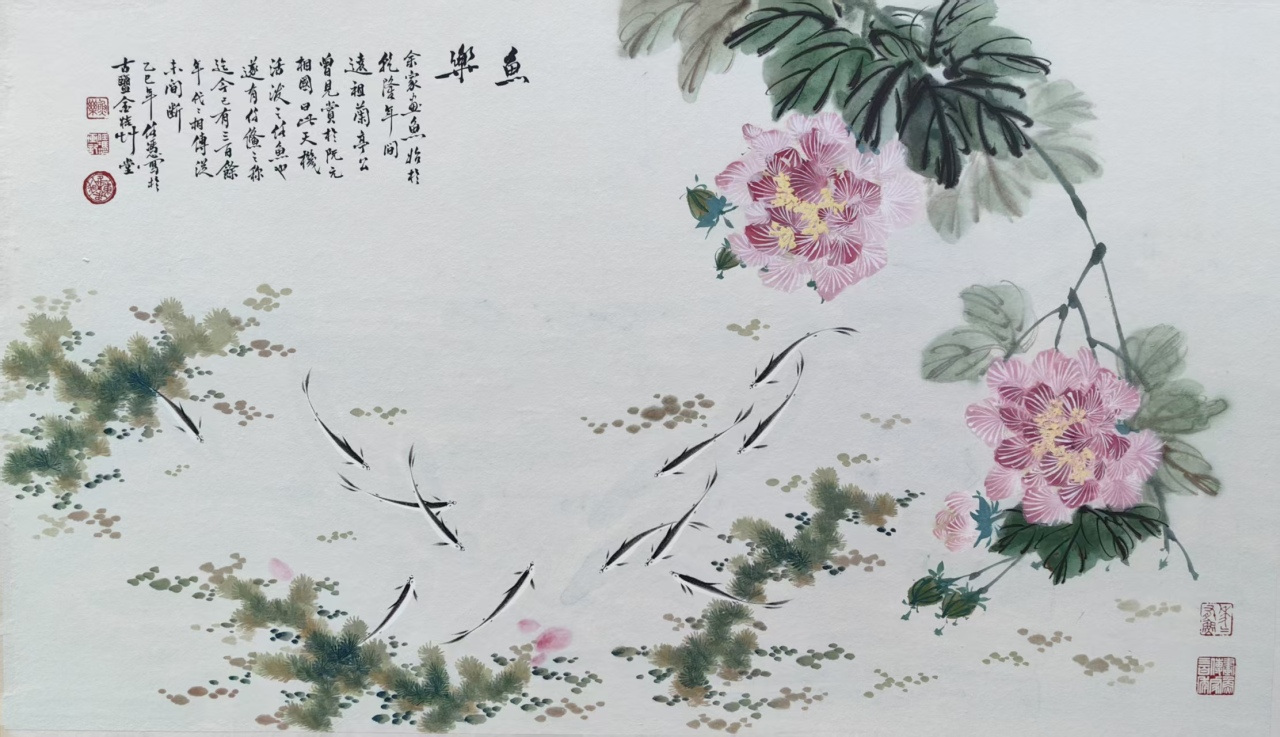 魚樂
余家画魚始於
乾隆年间
遠祖蘭亭公
曾見賞於阮元
相國曰此天機
活泼之任魚也
遂有任儵之称
迄今已有三百餘
年代代相傳從
未间断
乙巳年任愚寫於
古鹽金桂艸堂